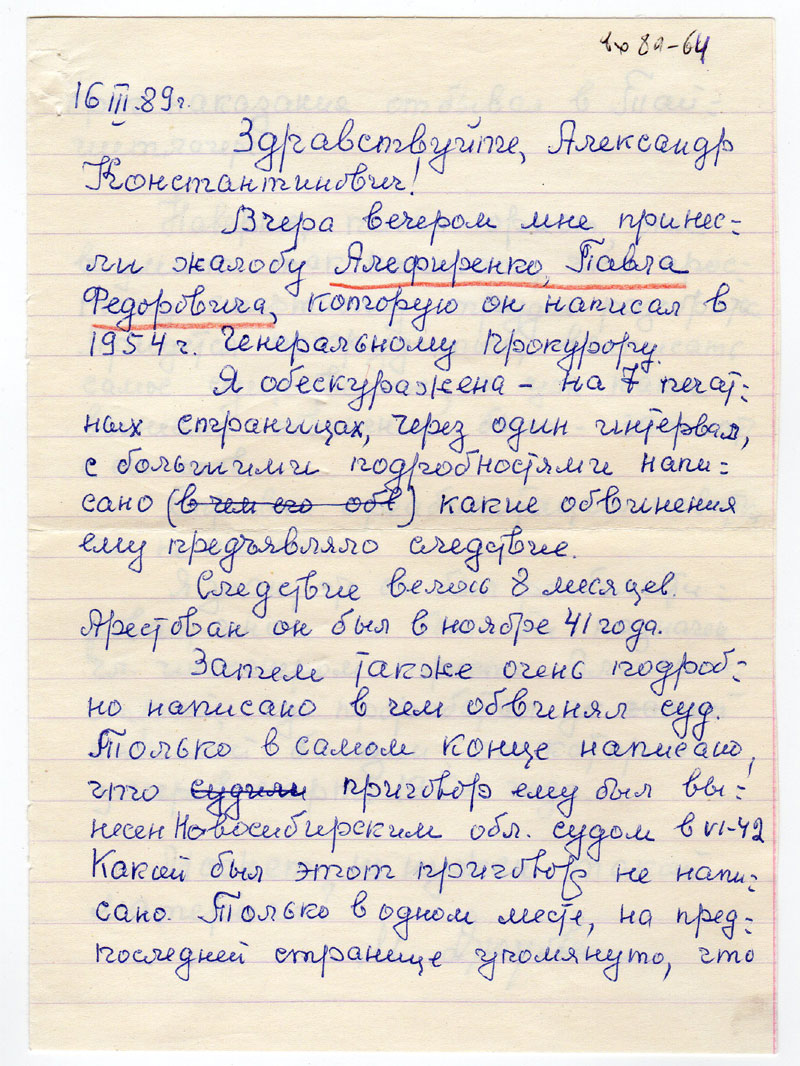 вх 89-64
16 III.89г.
Здравствуйте, Александр
Константинович!
Вчера вечером мне принес=
ли жалобу Алефиренко, Павла
Федоровича, которую он написал в
1954 г. Генеральному прокурору.
Я обескуражена – на 7 печат=
ных страницах, через один интервал,
с большими подробностями напи=
сано (в чем его обв) какие обвинения
ему предъявляло следствие.
Следствие велось 8 месяцев.
Арестован он был в ноябре 41 года.
Затем также очень подроб=
но написано в чем обвинял суд.
Только в самом конце написано,
что судили приговор ему был вы=
несен Новосибирским обл. судом в VI-42
Какой был этот приговор не напи=
сано. Только в одном месте, на пред=
последней странице упомянуто, что